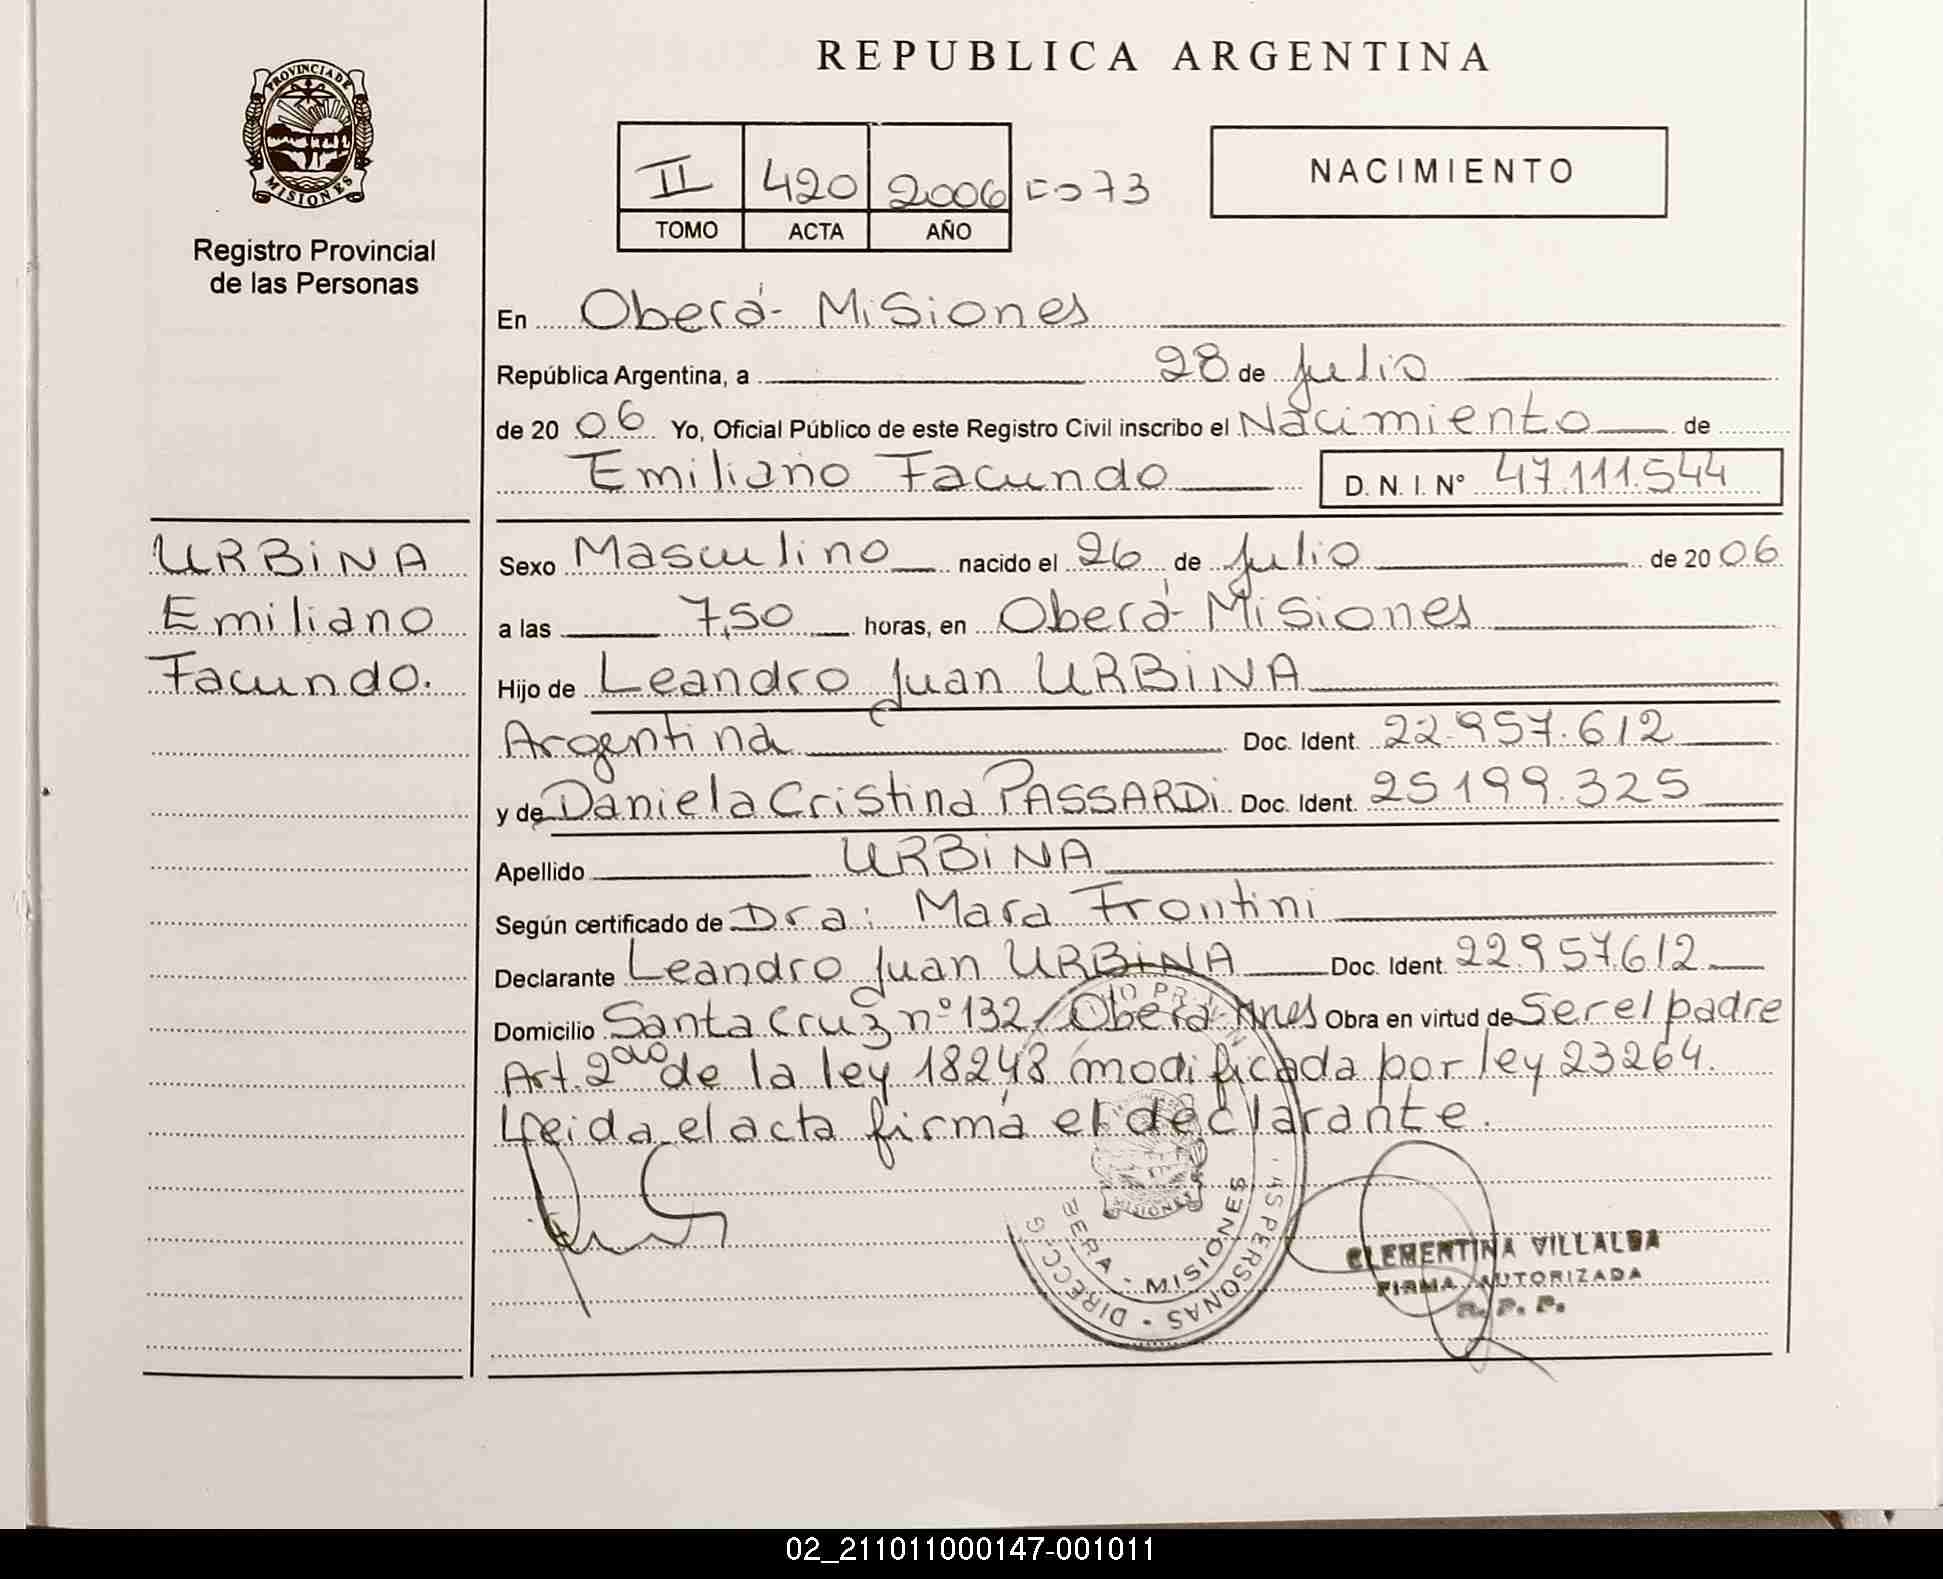 REPUBLICA ARGENTINA
PROVINCIA DE
MISIONES
Registro Provincial
de las Personas
II 420 2006
TOMO ACTA AÑO
73
NACIMIENTO
En Oberá - Misiones
República Argentina, a 28 de Julio
de 2006 Yo, Oficial Público de este Registro Civil inscribo el Nacimiento de
Emiliano Facundo D. N. I. Nº 47.111.544
URBINA
Emiliano
Facundo.
Sexo Masculino nacido el 26 de Julio de 2006
a las 7,50 horas, en Oberá - Misiones
Hijo de Leandro Juan URBINA
Argentina Doc. Ident. 22.957.612
y de Daniela Cristina PASSARDI Doc. Ident. 25199.325
Apellido URBINA
Según certificado de Dra: Mara Frontini
Declarante Leandro Juan URBINA Doc. Ident. 22957612
Domicilio Santa Cruz nº 132 / Oberá Mnes Obra en virtud de Ser el padre
Art. 2do de la ley 18248 modificada por ley 23264.
Leida el acta firma el declarante.
MISIONES
BERA - MISIONES
DIRECC · PERSONAS
CLEMENTINA VILLALBA
FIRMA AUTORIZADA
R. P. P.
02_211011000147-001011